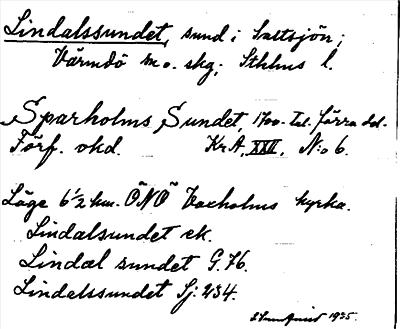 Lindalssundet, sund i Saltsjön;
Värmdö sn o. skg; Sthlms l.
Sparholms Sundet, 1700-tal. förra del.
Förf. okd. Kr.A. XXII. N:o 6.
Läge 6 1/2 km. ÖNÖ Vaxholms kyrka.
Lindalsundet ek.
Lindal sundet G.76.
Lindalssundet Sj. 234.
1935.